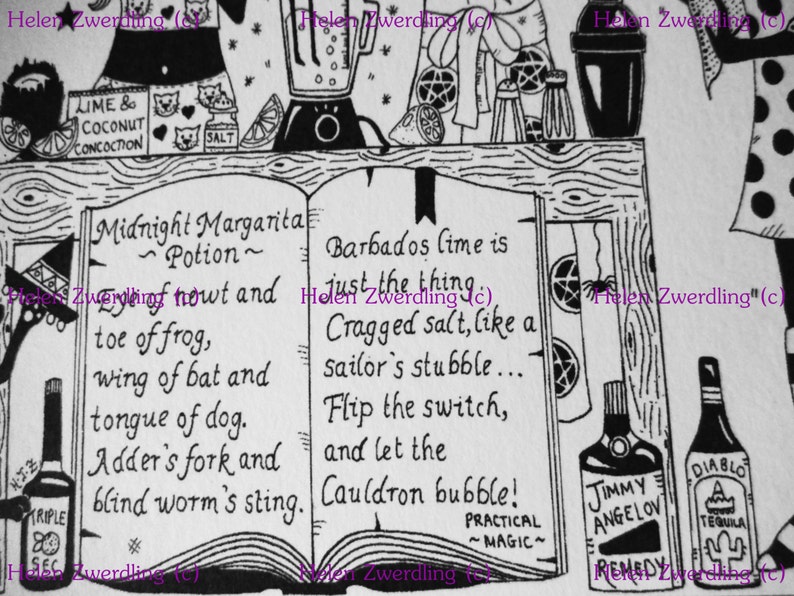 Helen Zwerdling (c) Helen Zwerdling (c) Helen Zwerdling (c)
LIME &
COCONUT
CONCOCTION
SALT
Midnight Margarita
~ Potion ~
Eye of newt and
toe of frog,
wing of bat and
tongue of dog.
Adder's fork and
blind worm's sting.
Barbados lime is
just the thing.
Cragged salt, like a
sailor's stubble...
Flip the switch,
and let the
Cauldron bubble!
PRACTICAL
~ MAGIC ~
Helen Zwerdling (c) Helen Zwerdling (c) Helen Zwerdling (c)
H.J.Z
TRIPLE
SEC
JIMMY
ANGELOV
REMEDY
DIABLO
TEQUILA
Helen Zwerdling (c) Helen Zwerdling (c) Helen Zwerdling (c)